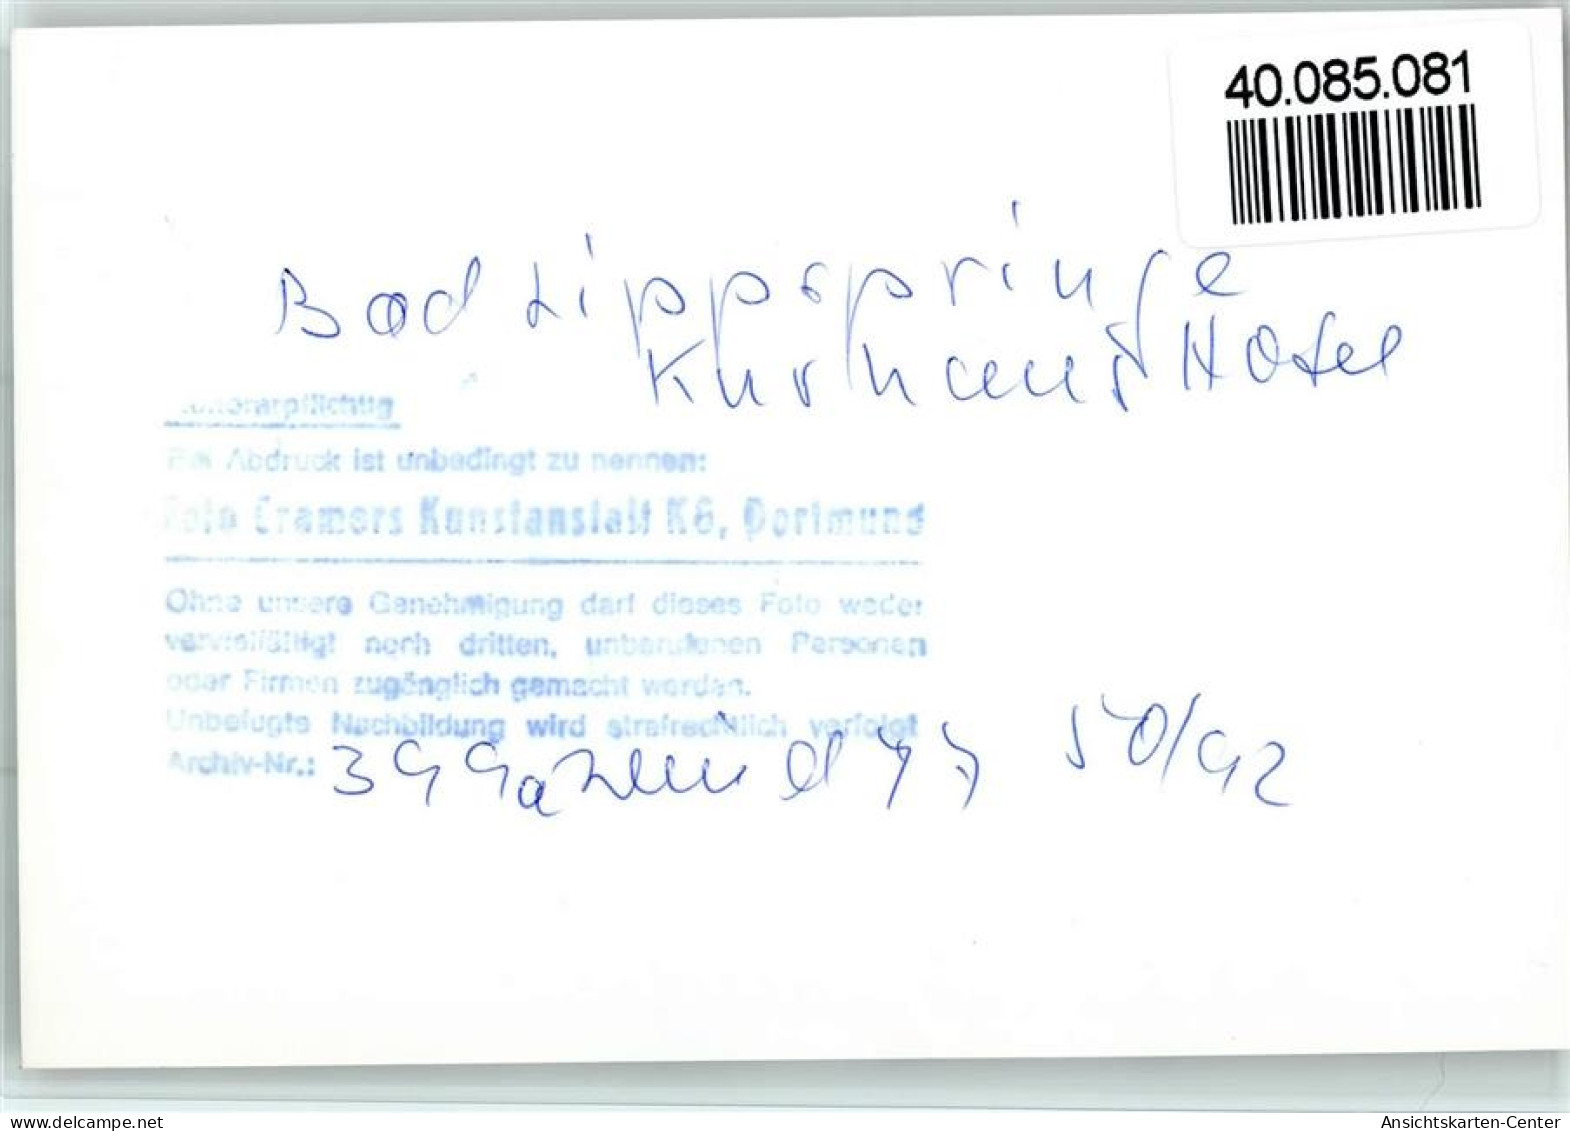 40.085.081
Bad Lippspringe
Kurhaus Hotel
Honorarpflichtig
Bei Abdruck ist unbedingt zu nennen:
Foto Cramers Kunstanstalt KG, Dortmund
Ohne unsere Genehmigung darf dieses Foto weder
vervielfältigt noch dritten, unberufenen Personen
oder Firmen zugänglich gemacht werden.
Unbefugte Nachbildung wird strafrechtlich verfolgt
Archiv-Nr.: 50/92
www.delcampe.net
Ansichtskarten-Center